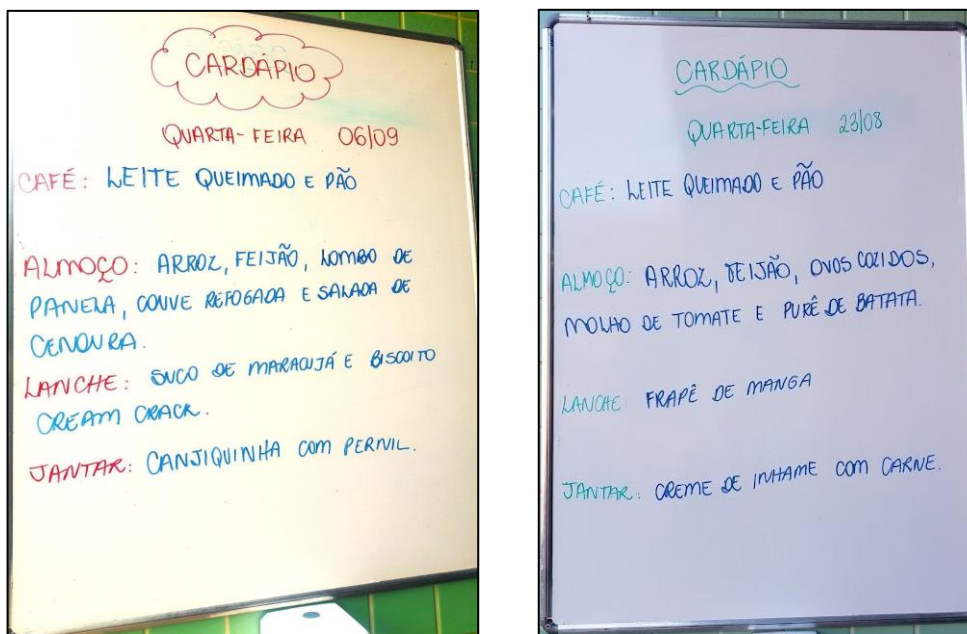 CARDÁPIO
QUARTA-FEIRA 06/09
CAFÉ: LEITE QUEIMADO E PÃO
ALMOÇO: ARROZ, FEIJÃO, LOMBO DE
PANELA, COUVE REFOGADA E SALADA DE
CENOURA.
LANCHE: SUCO DE MARACUJÁ E BISCOITO
CREAM CRACK.
JANTAR: CANJIQUINHA COM PERNIL.
CARDÁPIO
QUARTA-FEIRA 23/08
CAFÉ: LEITE QUEIMADO E PÃO
ALMOÇO: ARROZ, FEIJÃO, OVOS COZIDOS,
MOLHO DE TOMATE E PURÊ DE BATATA.
LANCHE: FRAPÊ DE MANGA
JANTAR: CREME DE INHAME COM CARNE.